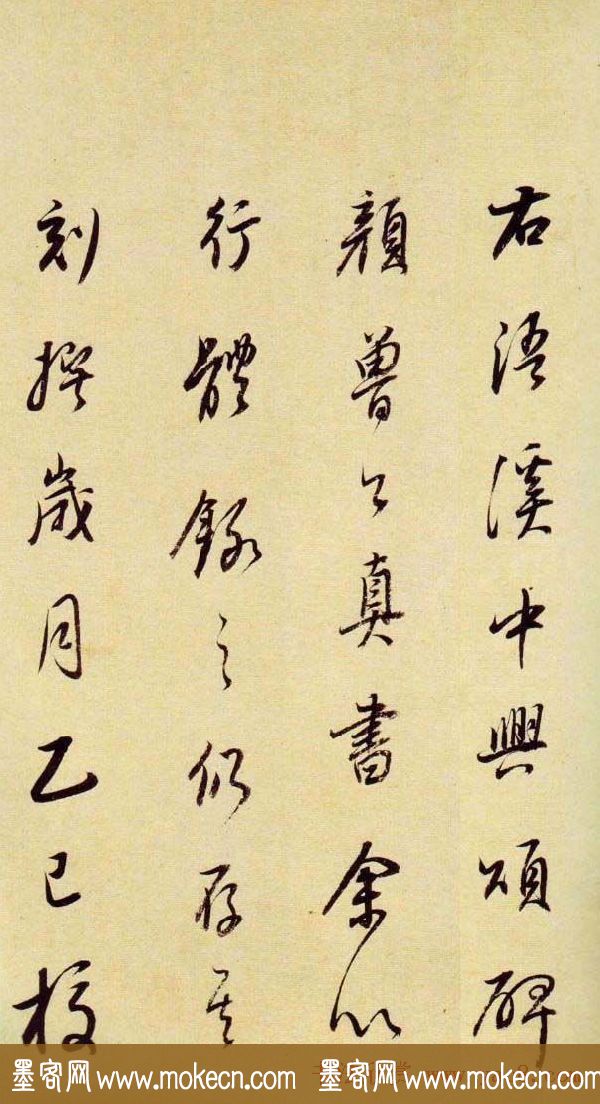 右浯溪中興頌碑
顏魯公真書余以
行體錄之仍存其
刻撰歲月乙巳校
墨客网 www.mokecn.com 墨客网 www.mokecn.com